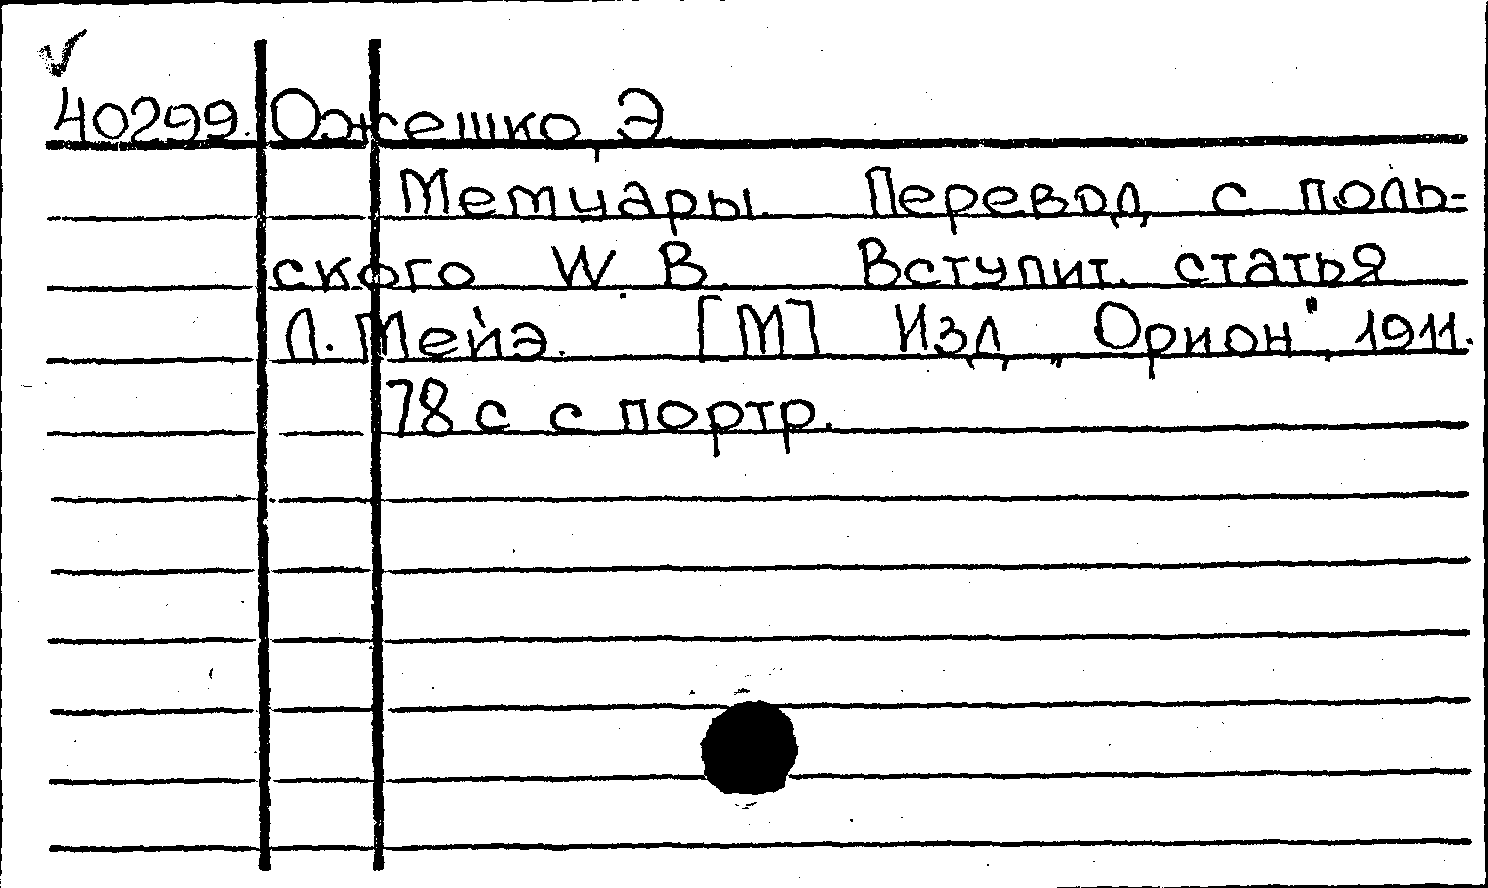 40299. Ожешко, Э
Мемуары. Перевод с поль-
ского W. B. Вступит. статья
Л. Мейэ. [М] Изд. „Орион", 1911.
78 с с портр.